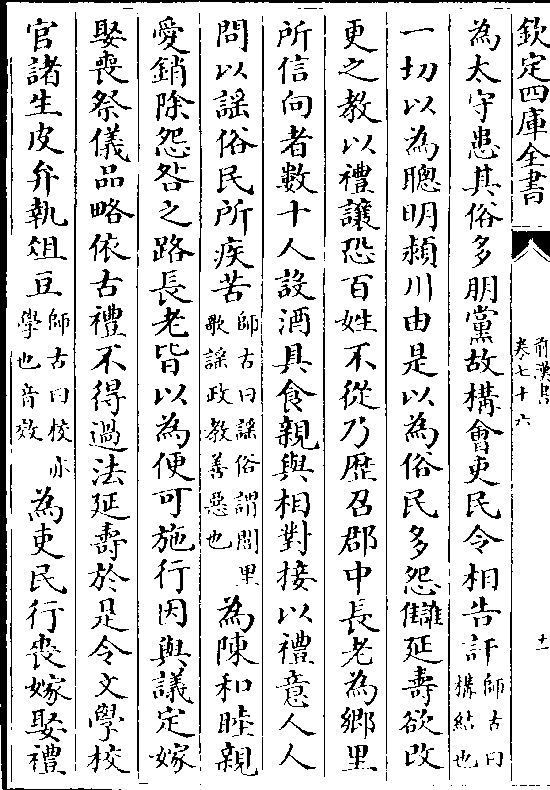 欽定四庫全書
前漢書
卷七十六
十一
為太守患其俗多朋黨故構會吏民令相告訐師古曰構結也
一切以為聰明潁川由是以為俗民多怨讎延壽欲改
更之教以禮讓恐百姓不從乃歴召郡中長老為鄉里
所信向者數十人設酒具食親與相對接以禮意人人
問以謡俗民所疾苦師古曰謡俗謂閭里歌謡政教善惡也為陳和睦親
愛銷除怨咎之路長老皆以為便可施行因與議定嫁
娶喪祭儀品略依古禮不得過法延壽於是令文學校
官諸生皮弁執俎豆師古曰校亦學也音效為吏民行喪嫁娶禮